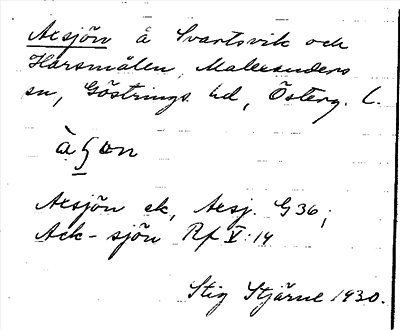 Acsjön å Svartsvik och
Harsmålen, Malexanders
sn, Göstrings hd, Österg. l.
Acsjön ek, Acsj. G36;
Ack-sjön Rf V:14
Stig Stjärne 1930.